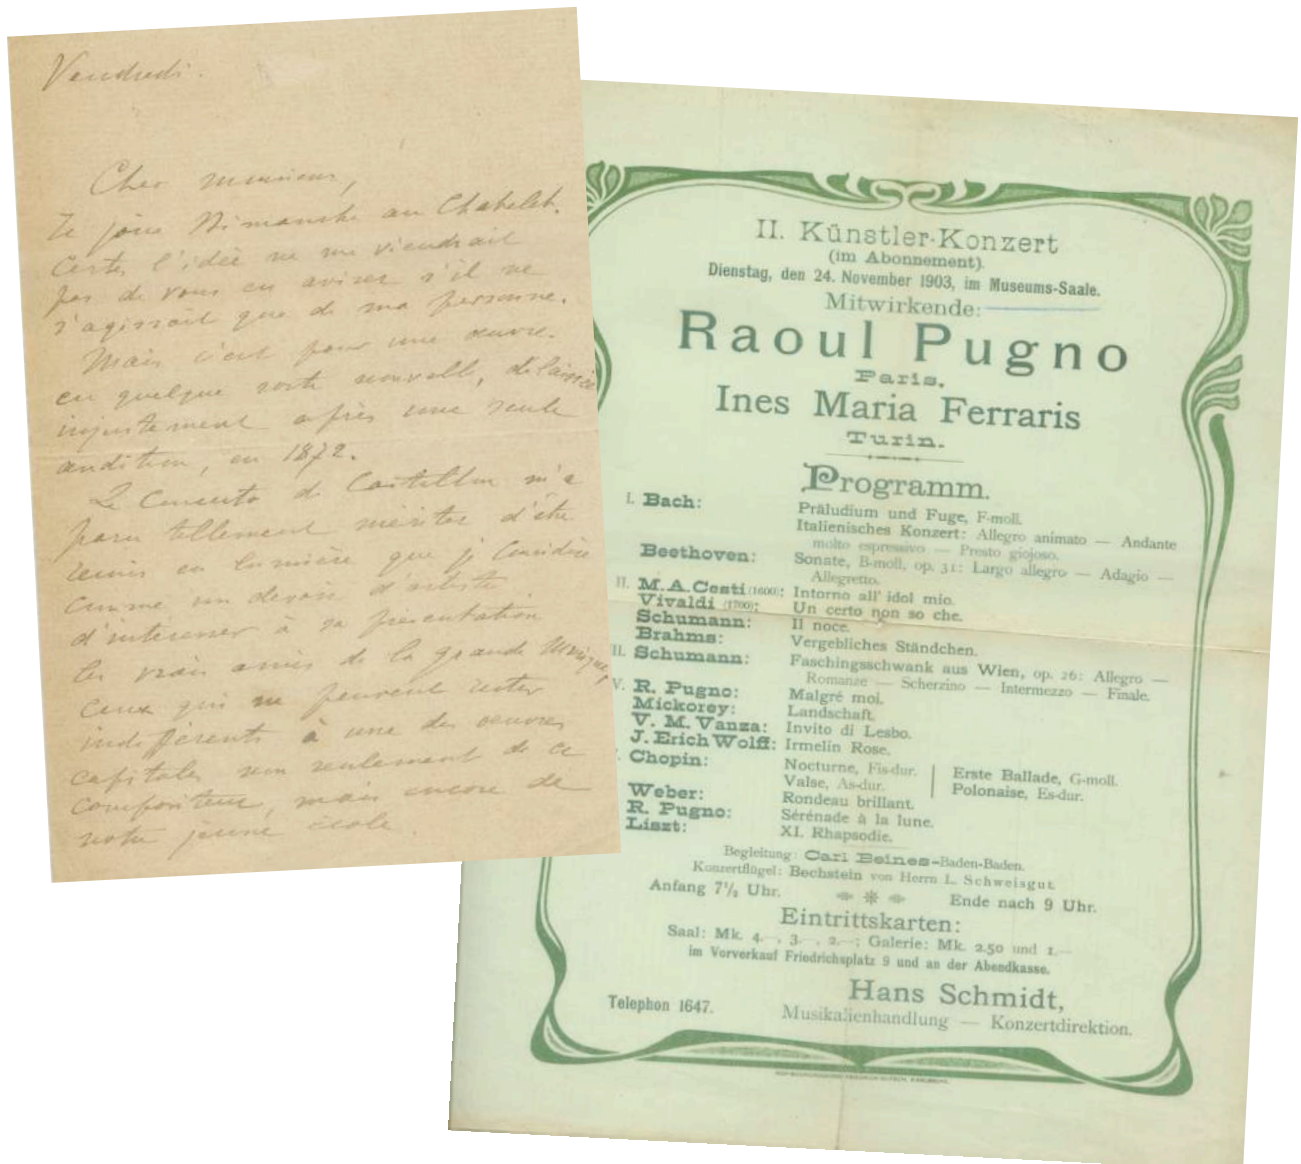 Vendredi.
Cher monsieur,
Je joue Dimanche au Chatelet.
Certes l'idée ne me viendrait
pas de vous en aviser s'il ne
s'agissait que de ma personne.
Mais c'est pour une œuvre
en quelque sorte nouvelle, délaissée
injustement après une seule
audition, en 1872.
Le Concerto de Castillon m'a
paru tellement mériter d'être
remis en lumière que je considère
comme un devoir d'artiste
d'intéresser à sa présentation
les vrais amis de la grande Musique,
ceux qui ne peuvent rester
indifférents à une des œuvres
capitales non seulement de ce
compositeur, mais encore de
notre jeune école.
II. Künstler-Konzert
(im Abonnement).
Dienstag, den 24. November 1903, im Museums-Saale.
Mitwirkende:
Raoul Pugno
Paris.
Ines Maria Ferraris
Turin.
Programm.
I. Bach: Präludium und Fuge, F-moll.
Italienisches Konzert: Allegro animato — Andante
molto espressivo — Presto giojoso.
Beethoven: Sonate, B-moll, op. 31: Largo allegro — Adagio —
Allegretto.
II. M. A. Cesti (1600): Intorno all' idol mio.
Vivaldi (1700): Un certo non so che.
Schumann: Il noce.
Brahms: Vergebliches Ständchen.
II. Schumann: Faschingsschwank aus Wien, op. 26: Allegro —
Romanze — Scherzino — Intermezzo — Finale.
V. R. Pugno: Malgré moi.
Mickorey: Landschaft.
V. M. Vanza: Invito di Lesbo.
J. Erich Wolff: Irmelin Rose.
Chopin: Nocturne, Fis-dur. | Erste Ballade, G-moll.
Valse, As-dur. | Polonaise, Es-dur.
Weber: Rondeau brillant.
R. Pugno: Sérénade à la lune.
Liszt: XI. Rhapsodie.
Begleitung: Carl Beines-Baden-Baden.
Konzertflügel: Bechstein von Herrn L. Schweisgut.
Anfang 7½ Uhr. Ende nach 9 Uhr.
Eintrittskarten:
Saal: Mk. 4.—, 3.—, 2.—; Galerie: Mk. 2.50 und 1.—
im Vorverkauf Friedrichsplatz 9 und an der Abendkasse.
Hans Schmidt,
Telephon 1647. Musikalienhandlung — Konzertdirektion.